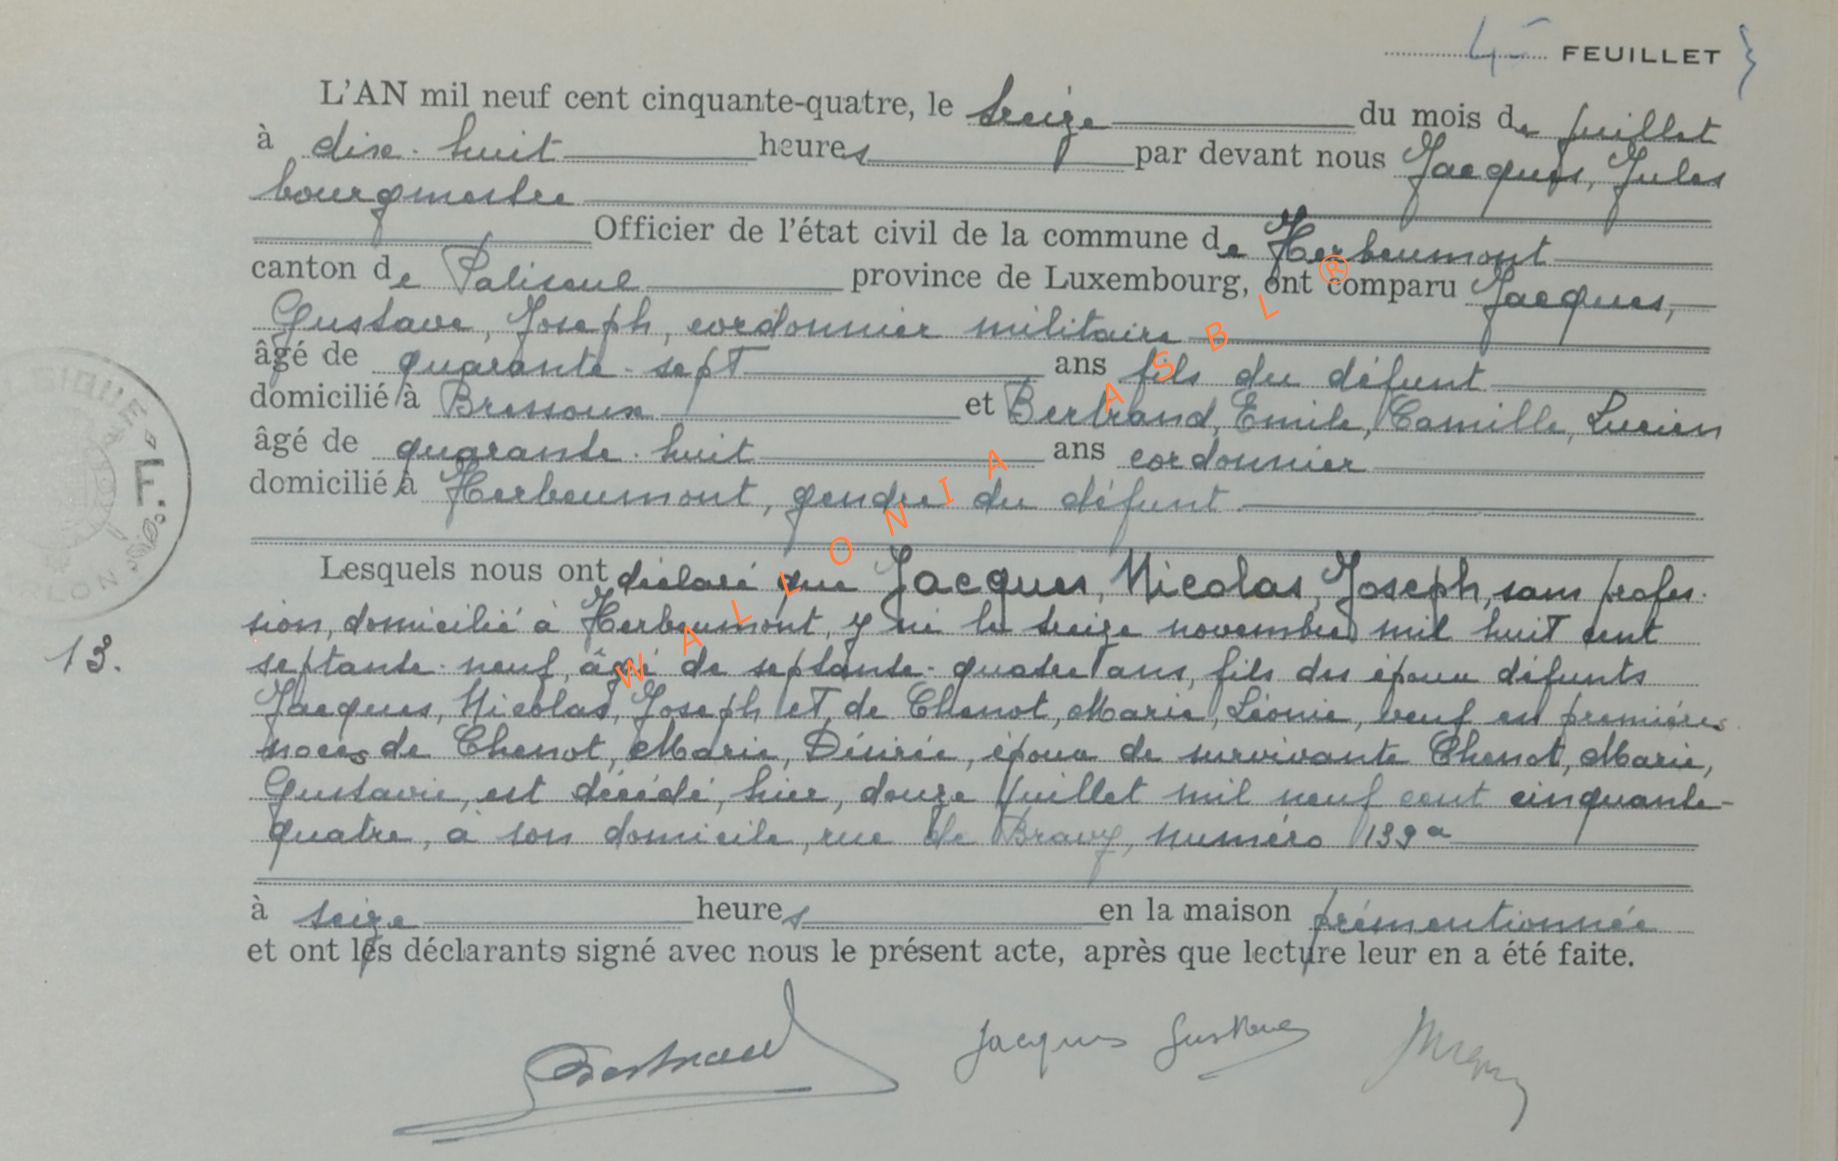 45 FEUILLET
L'AN mil neuf cent cinquante-quatre, le treize du mois de juillet
à dix-huit heures par devant nous Jacques, Jules
bourgmestre
Officier de l'état civil de la commune de Herbeumont
canton de Paliseul province de Luxembourg, ont comparu Jacques,
Gustave, Joseph, cordonnier militaire
âgé de quarante-sept ans fils du défunt
domicilié à Bressoux et Bertrand, Emile, Camille, Lucien
âgé de quarante-huit ans cordonnier
domicilié à Herbeumont, gendre du défunt
Lesquels nous ont déclaré que Jacques, Nicolas, Joseph, sans profes-
sion, domicilié à Herbeumont, y né le treize novembre mil huit cent
septante-neuf, âgé de septante-quatre ans, fils des époux défunts
Jacques, Nicolas, Joseph et de Chenot, Marie, Léonie, veuf en premières
noces de Chenot, Marie, Désirée, époux de survivante Chenot, Marie,
Gustavie, est décédé, hier, douze juillet mil neuf cent cinquante-
quatre, à son domicile, rue de Bravy, numéro 139a
13.
à seize heures en la maison prémentionnée
et ont les déclarants signé avec nous le présent acte, après que lecture leur en a été faite.
Bertrand Jacques Gustave
WALLONIA ASBL ®